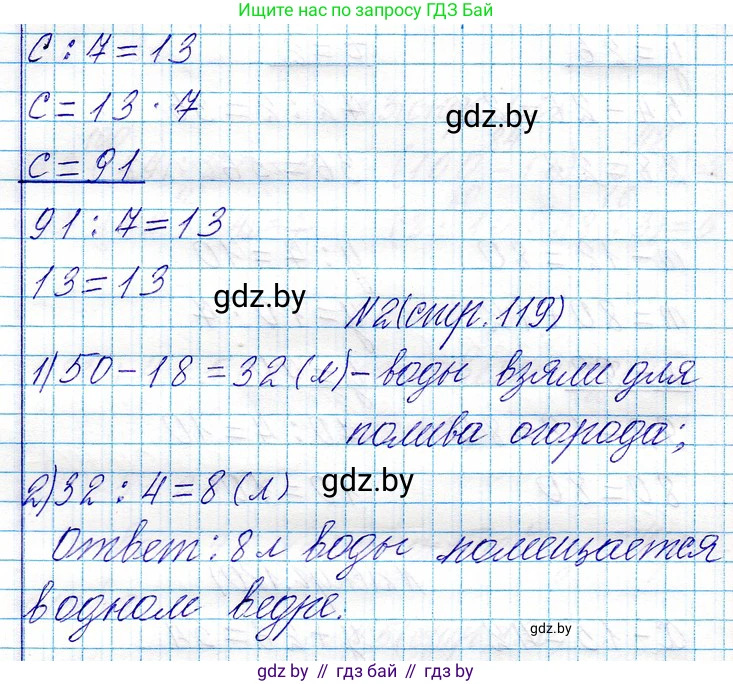 Ищите нас по запросу ГДЗ Бай
c : 7 = 13
c = 13 · 7
gdz.by
c = 91
91 : 7 = 13
13 = 13
gdz.by
№2(стр. 119)
1) 50 - 18 = 32 (л) - воды взяли для
полива огорода;
2) 32 : 4 = 8 (л)
gdz.by
Ответ: 8 л воды помещается
в одном ведре.
gdz.by
gdz.by // гдз бай // гдз by